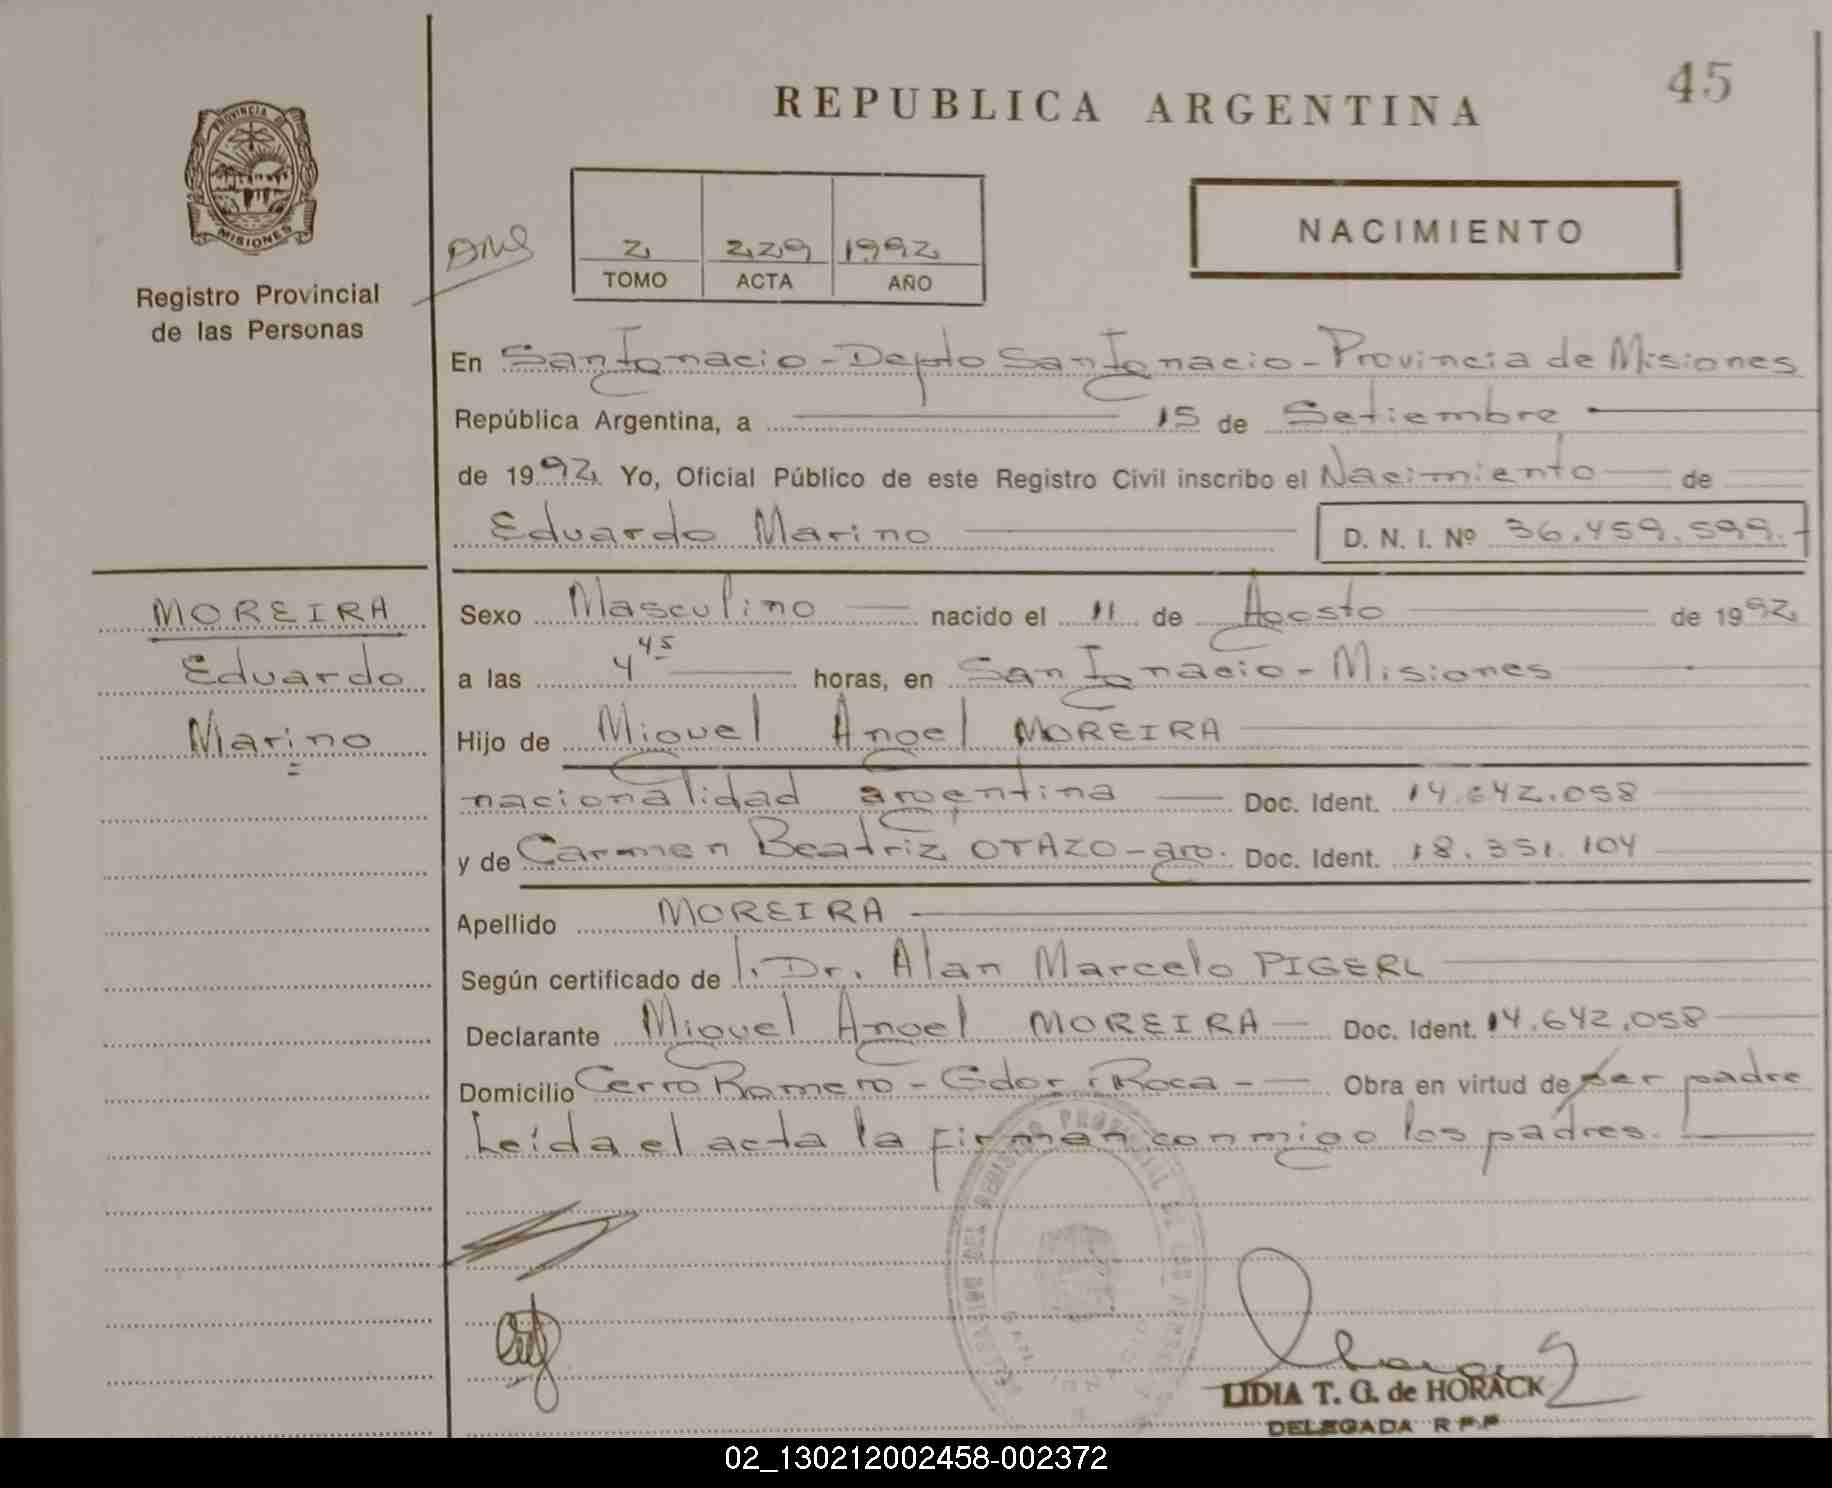 45
REPUBLICA ARGENTINA
PROVINCIA DE
MISIONES
Registro Provincial
de las Personas
2 229 1992
TOMO ACTA AÑO
NACIMIENTO
En San Ignacio - Depto San Ignacio - Provincia de Misiones
República Argentina, a 15 de Setiembre
de 1992 Yo, Oficial Público de este Registro Civil inscribo el Nacimiento de
Eduardo Marino D. N. I. Nº 36.459.599.-
MOREIRA
Eduardo
Marino
Sexo Masculino nacido el 11 de Agosto de 1992
a las 4 45 horas, en San Ignacio - Misiones
Hijo de Miguel Angel MOREIRA
nacionalidad argentina Doc. Ident. 14.642.058
y de Carmen Beatriz OTAZO - arg. Doc. Ident. 18.351.104
Apellido MOREIRA
Según certificado de l. Dr. Alan Marcelo PIGERL
Declarante Miguel Angel MOREIRA Doc. Ident. 14.642.058
Domicilio Cerro Romero - Gdor. Roca - Obra en virtud de ser padre
Leída el acta la firman conmigo los padres.
LIDIA T. G. de HORACK
DELEGADA R P P
02_130212002458-002372